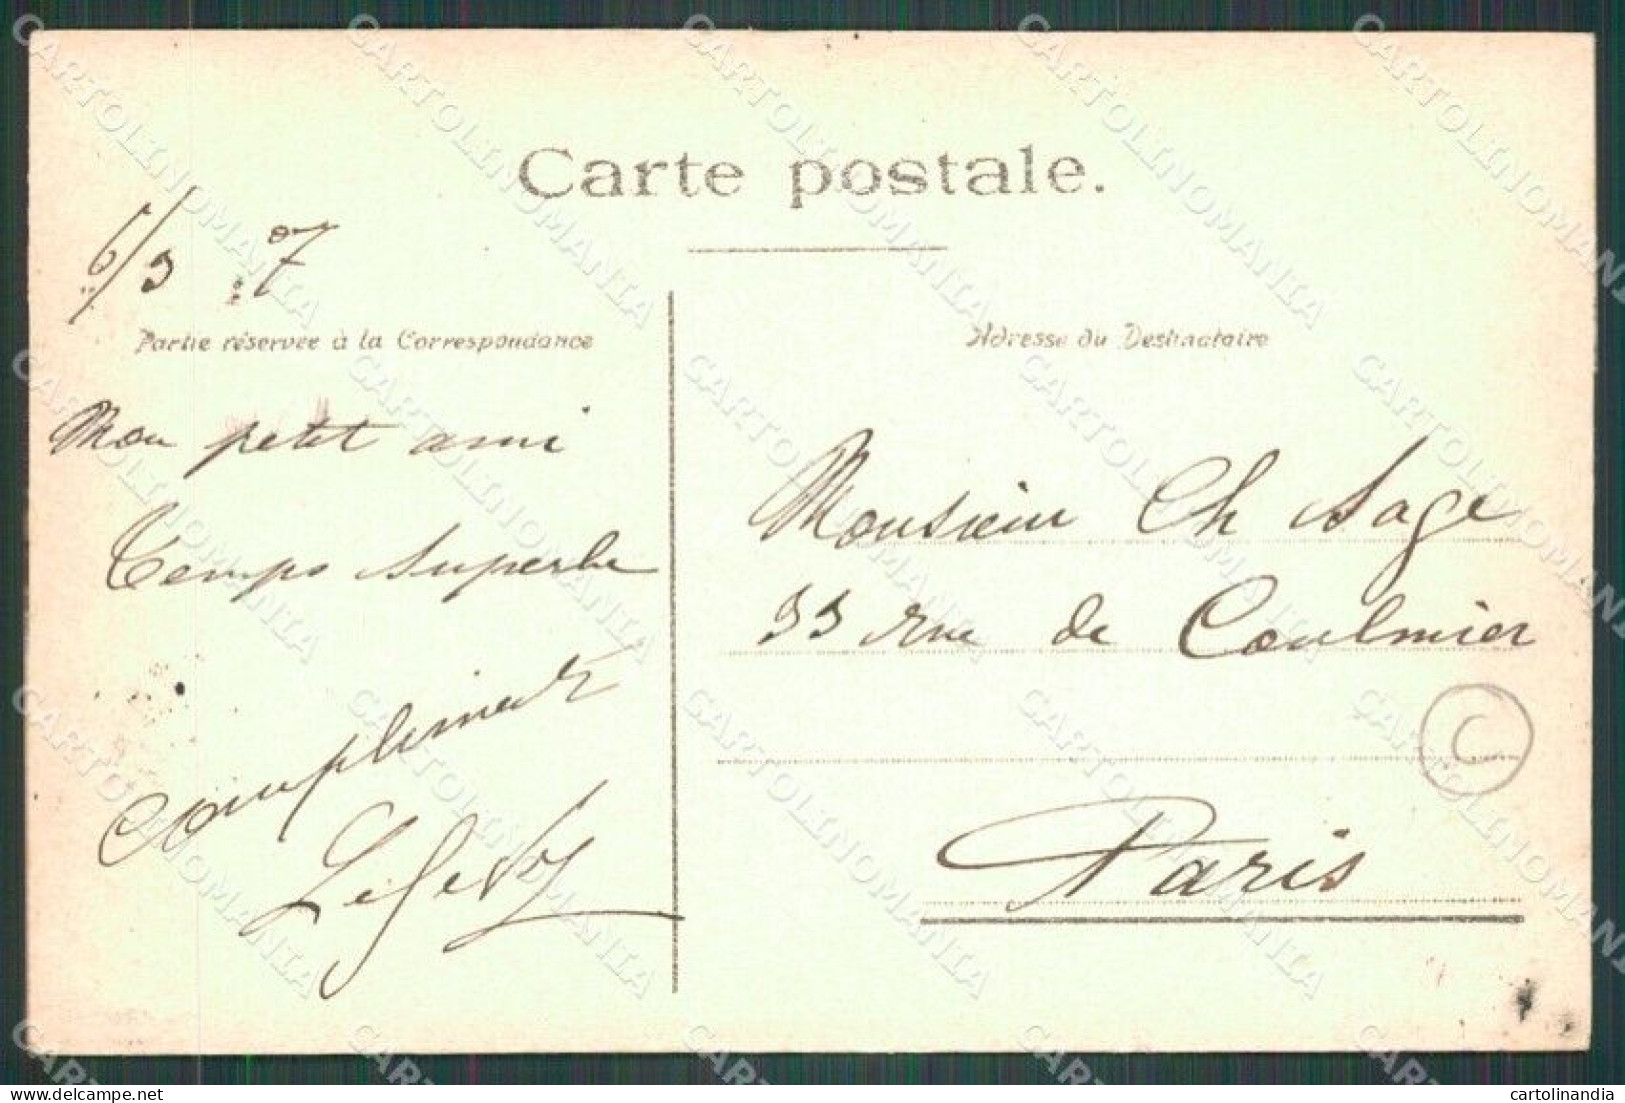 Carte postale.
6/3 07
Partie réservée à la Correspondance
Adresse du Destinataire
Mon petit ami
Temps superbe
Compliments
Monsieur Ch Sage
33 rue de Coulmier
Paris
C
CARTOLINOMANIA
www.delcampe.net
cartolinandia